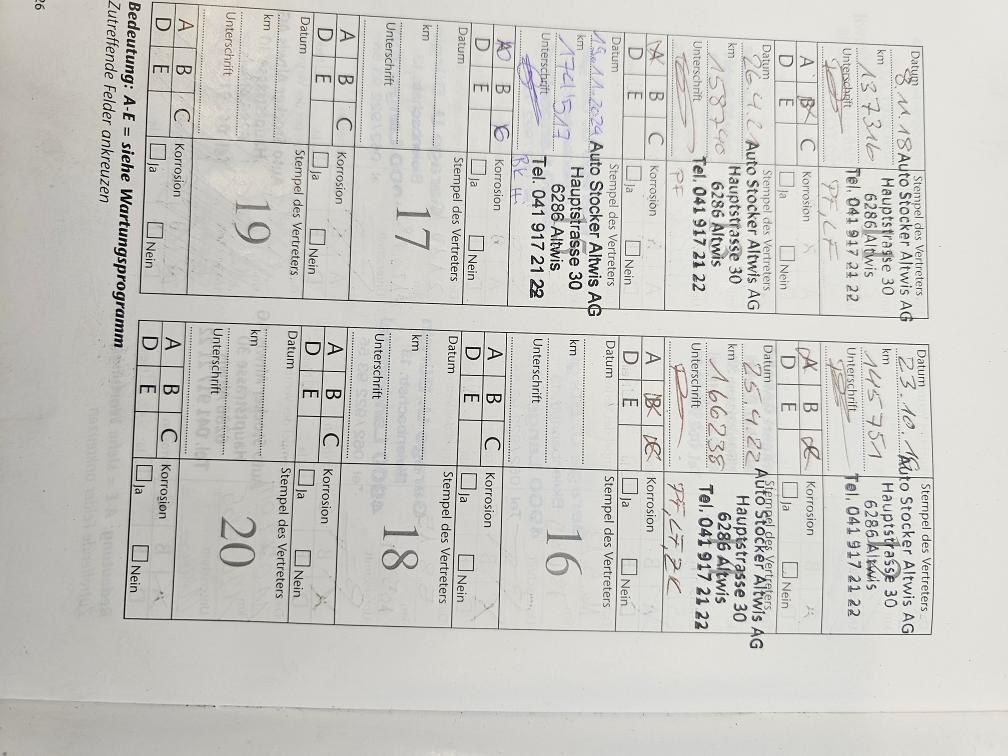 Datum
Stempel des Vertreters
8.11.18
Auto Stocker Altwis AG
km
Hauptstrasse 30
137316
6286 Altwis
Unterschrift
Tel. 041 917 21 22
PF, LF
A B C
Korrosion
D E
Ja
Nein
Datum
Stempel des Vertreters
23.10.19
Auto Stocker Altwis AG
km
Hauptstrasse 30
145751
6286 Altwis
Unterschrift
Tel. 041 917 21 22
A B C
Korrosion
D E
Ja
Nein
Datum
Stempel des Vertreters
26.4.21
Auto Stocker Altwis AG
km
Hauptstrasse 30
158740
6286 Altwis
Unterschrift
Tel. 041 917 21 22
PF
A B C
Korrosion
D E
Ja
Nein
Datum
Stempel des Vertreters
25.4.22
Auto Stocker Altwis AG
km
Hauptstrasse 30
166238
6286 Altwis
Unterschrift
Tel. 041 917 21 22
PF, LF, ZK
A B C
Korrosion
D E
Ja
Nein
Datum
Stempel des Vertreters
19.11.2024
Auto Stocker Altwis AG
km
Hauptstrasse 30
174517
6286 Altwis
Unterschrift
Tel. 041 917 21 22
BK Fl
A B C
Korrosion
D E
Ja
Nein
Datum
Stempel des Vertreters
km
16
Unterschrift
A B C
Korrosion
D E
Ja
Nein
Datum
Stempel des Vertreters
km
17
Unterschrift
A B C
Korrosion
D E
Ja
Nein
Datum
Stempel des Vertreters
km
18
Unterschrift
A B C
Korrosion
D E
Ja
Nein
Datum
Stempel des Vertreters
km
19
Unterschrift
A B C
Korrosion
D E
Ja
Nein
Datum
Stempel des Vertreters
km
20
Unterschrift
A B C
Korrosion
D E
Ja
Nein
Bedeutung: A-E = siehe Wartungsprogramm
Zutreffende Felder ankreuzen
26